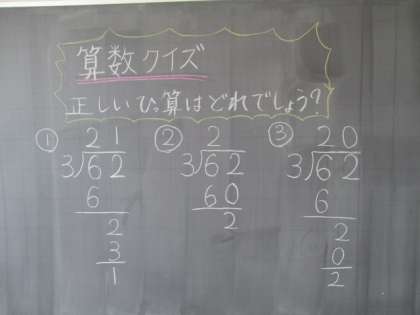 算数クイズ
正しいひっ算はどれでしょう?
① 21
3)62
6
2
3
1
② 2
3)62
60
2
③ 20
3)62
6
2
0
2